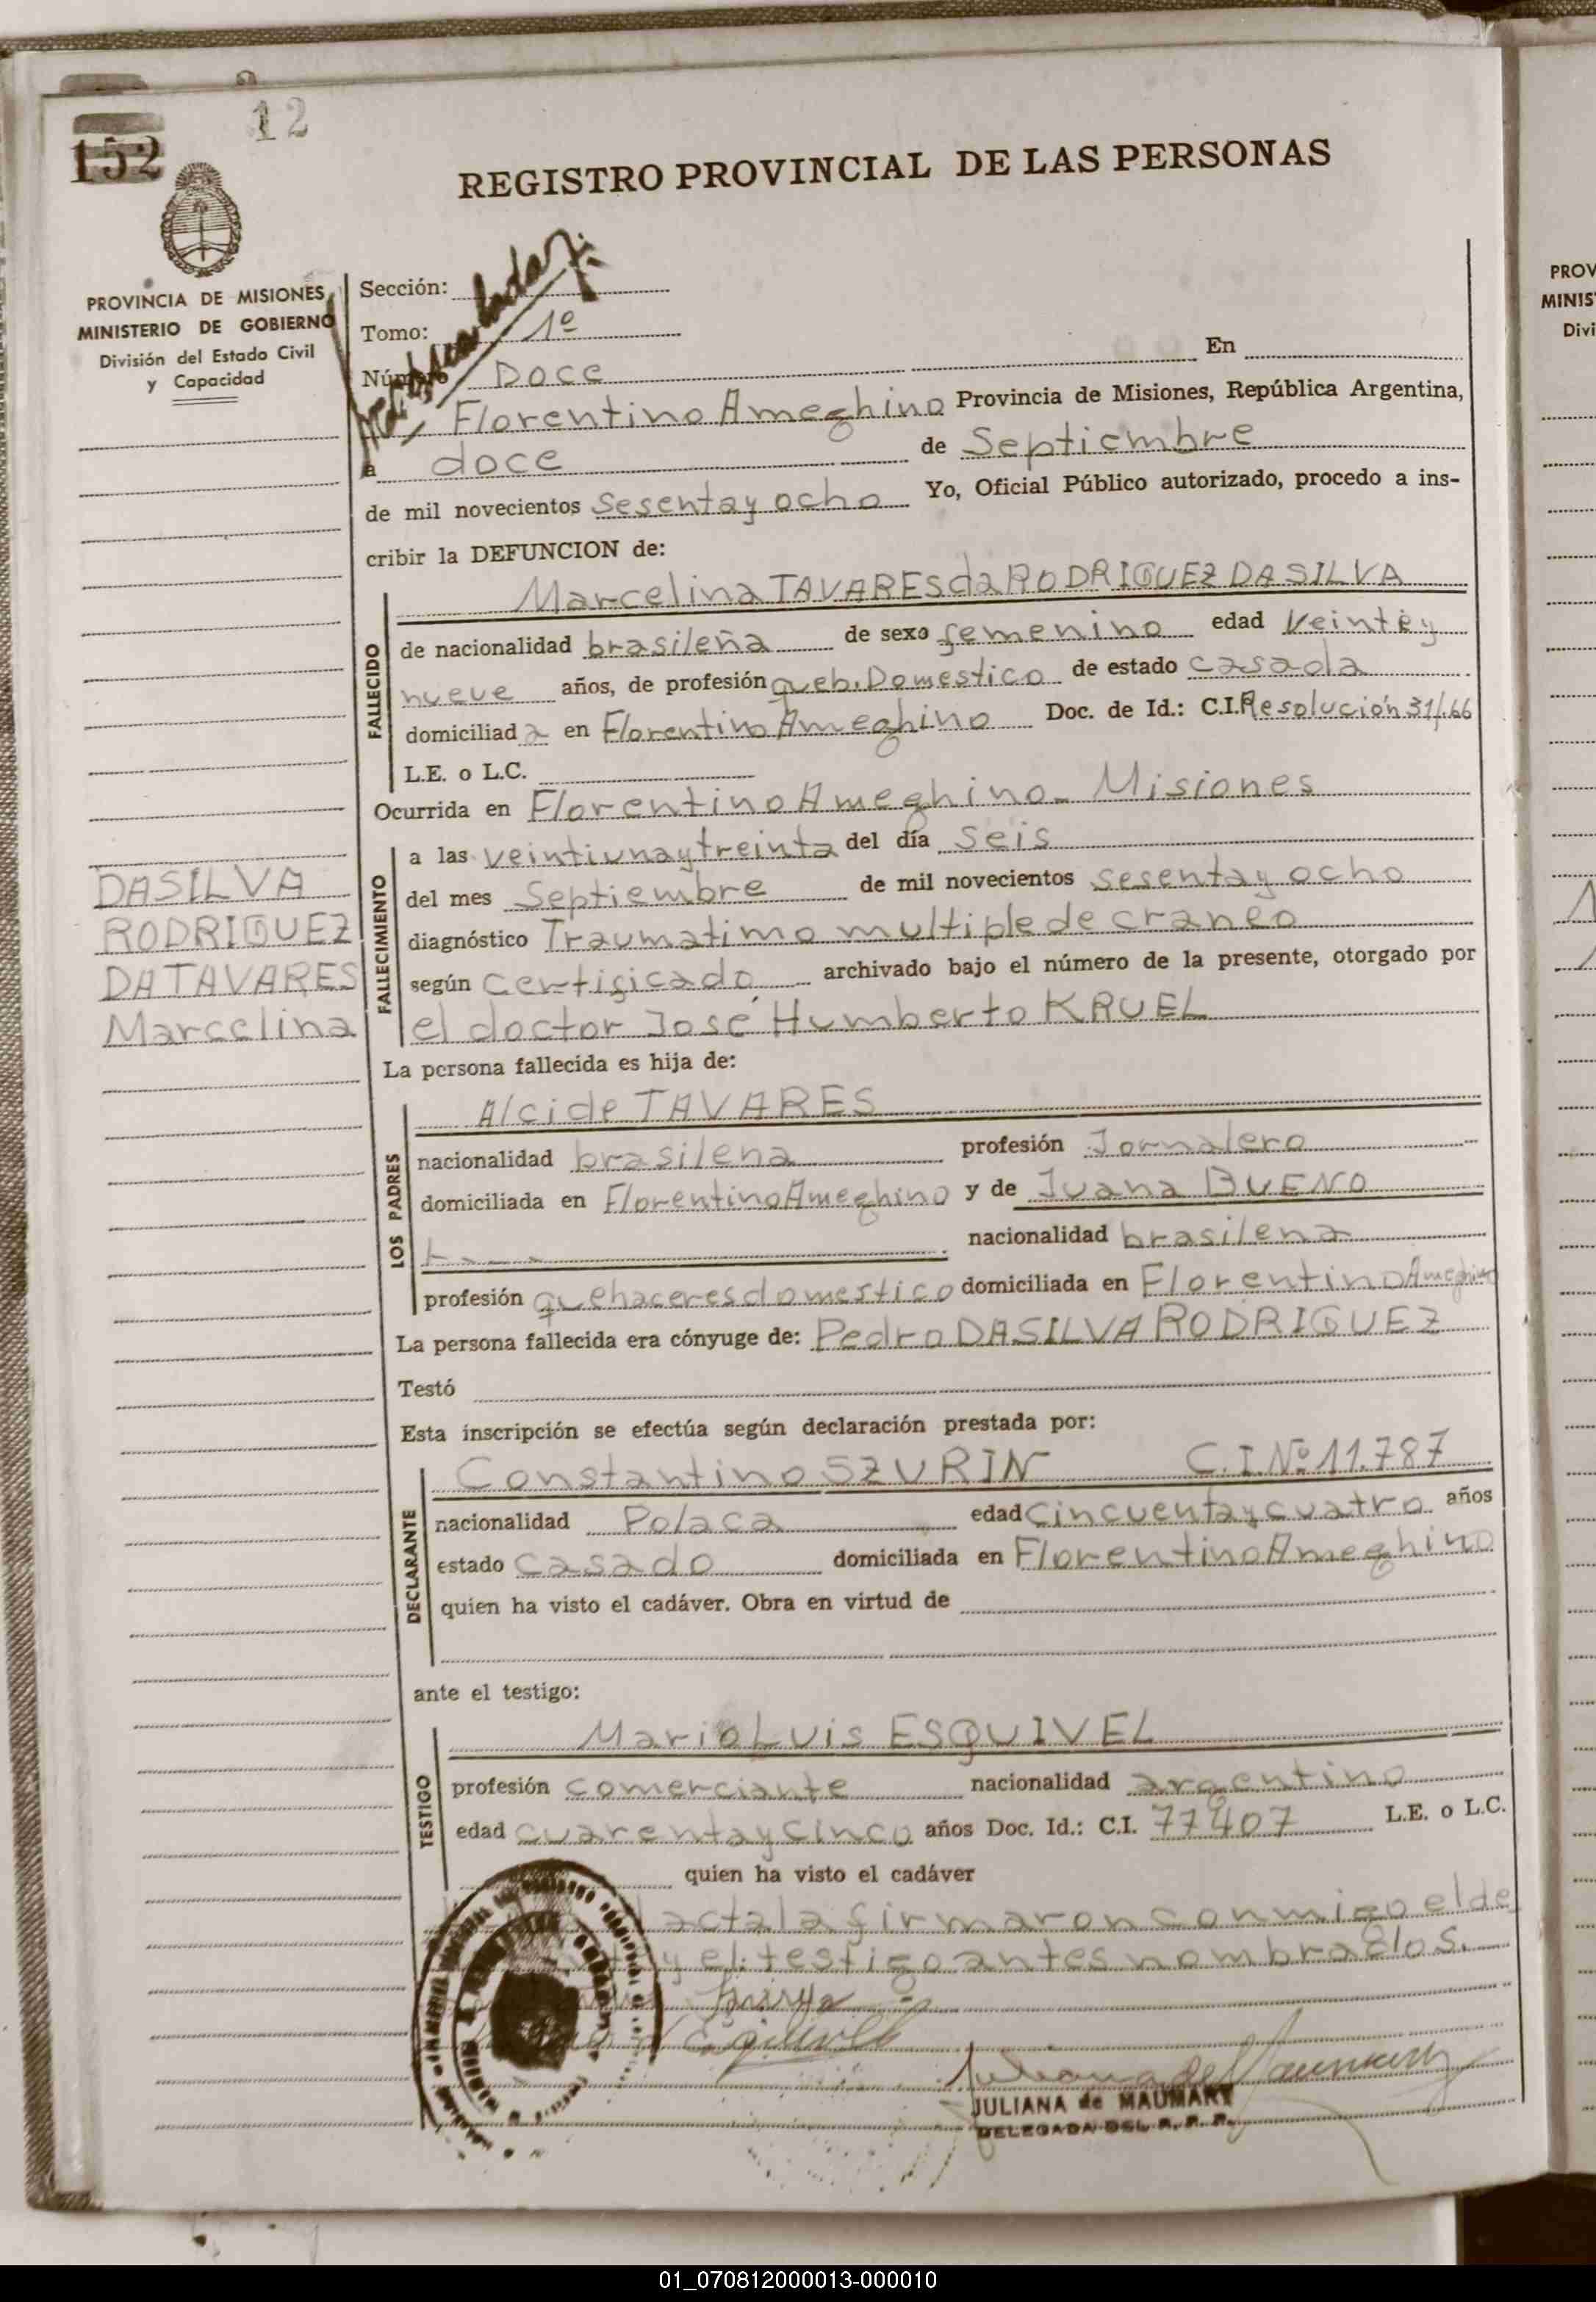 12
152
REGISTRO PROVINCIAL DE LAS PERSONAS
PROVINCIA DE MISIONES
MINISTERIO DE GOBIERNO
División del Estado Civil
y Capacidad
Sección:
Tomo: 1º
Número Doce
En
Florentino Ameghino Provincia de Misiones, República Argentina,
a doce de Septiembre
de mil novecientos Sesenta y ocho Yo, Oficial Público autorizado, procedo a ins-
cribir la DEFUNCION de:
FALLECIDO
Marcelina TAVARES da RODRIGUEZ DA SILVA
de nacionalidad brasileña de sexo femenino edad Veinti y
nueve años, de profesión queh. Domestico de estado casada
domiciliad a en Florentino Ameghino Doc. de Id.: C.I. Resolución 31/.66
L.E. o L.C.
Ocurrida en Florentino Ameghino - Misiones
FALLECIMIENTO
a las veintiuna y treinta del día Seis
del mes Septiembre de mil novecientos sesenta y ocho
diagnóstico Traumatimo multiple de craneo
según Certificado archivado bajo el número de la presente, otorgado por
el doctor José Humberto KRUEL
DASILVA
RODRIGUEZ
DA TAVARES
Marcelina
La persona fallecida es hija de:
LOS PADRES
Alcide TAVARES
nacionalidad brasilena profesión Jornalero
domiciliada en Florentino Ameghino y de Juana BUENO
nacionalidad brasilena
profesión quehaceres domestico domiciliada en Florentino Ameghino
La persona fallecida era cónyuge de: Pedro DASILVA RODRIGUEZ
Testó
Esta inscripción se efectúa según declaración prestada por:
DECLARANTE
Constantino SZURIN C.I.Nº 11.787
nacionalidad Polaca edad Cincuenta y cuatro años
estado casado domiciliada en Florentino Ameghino
quien ha visto el cadáver. Obra en virtud de
ante el testigo:
TESTIGO
Mario Luis ESQUIVEL
profesión comerciante nacionalidad argentino
edad cuarenta y cinco años Doc. Id.: C.I. 77407 L.E. o L.C.
quien ha visto el cadáver
acta la firmaron conmigo el de
y el testigo antes nombrados.
JULIANA de MAUMARY
DELEGADA DEL R. P. P.
PROV
MINIS
Divi
01_070812000013-000010